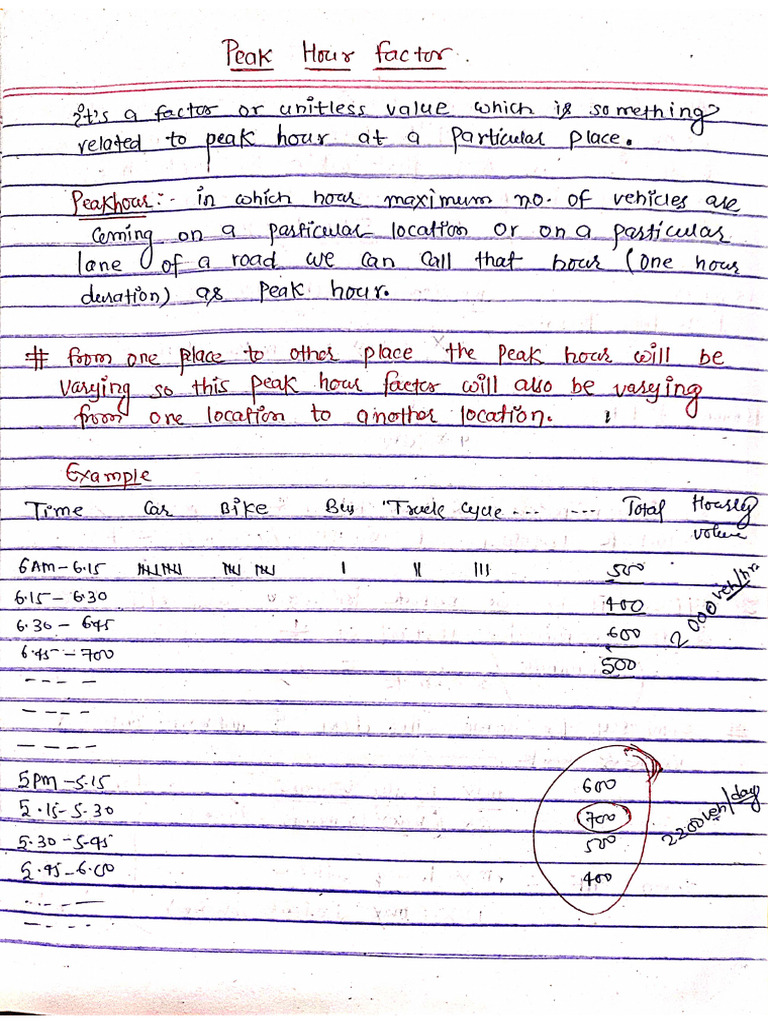 Peak Hour factor.
it's a factor or unitless value which is something
related to peak hour at a particular place.
Peakhour:- in which hour maximum no. of vehicles are
coming on a particular location or on a particular
lane of a road we can call that hour (one hour
duration) as peak hour.
# from one place to other place the peak hour will be
varying so this peak hour factor will also be varying
from one location to another location.
Example
Time Car Bike Bus Truck Cycle --- --- Total Hourly volume
6AM-6.15 500
6.15-6.30 400
6.30-6.45 600
6.45-700 500
2000 veh/hr
----
----
----
5PM-5.15 600
5.15-5.30 700
5.30-5.45 500
5.45-6.00 400
2200 veh/day
----
----